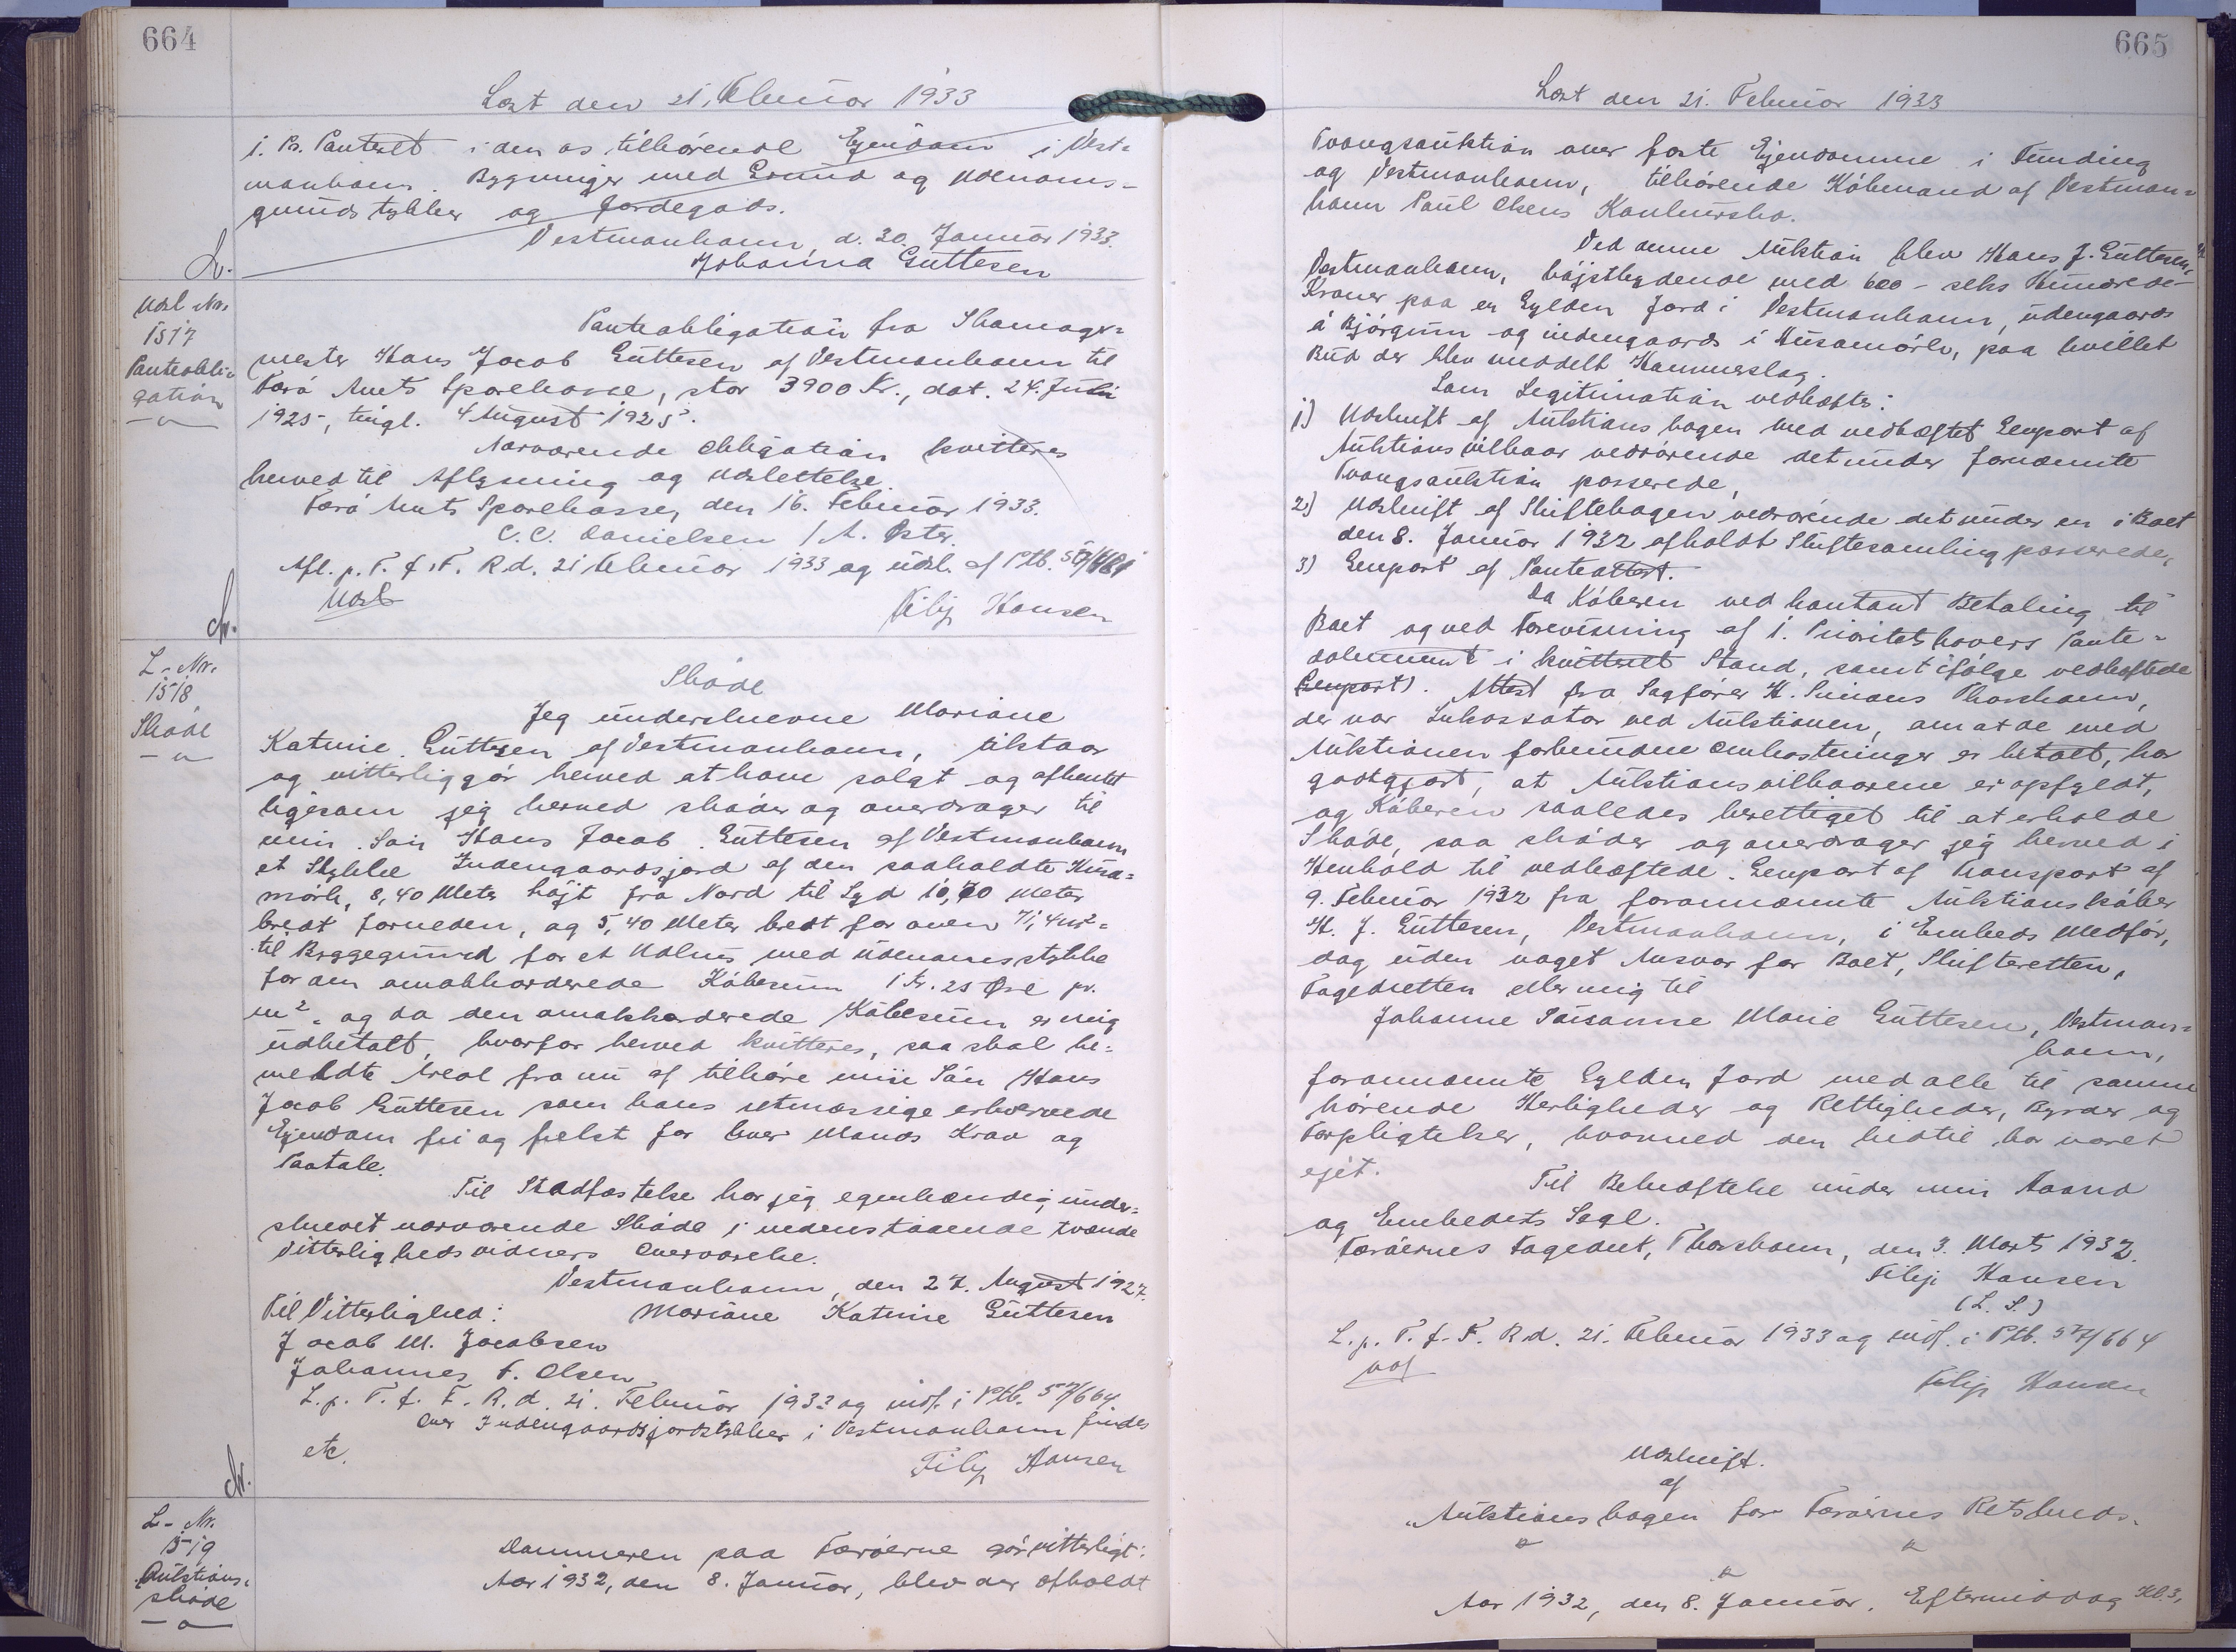 664
Læst den 21. Februar 1933
1. Pr. Panteret i den os tilhørende Ejendom i Vest-
manhavn. Bygninger med Grund og Udenoms-
grundstykker og Jordegods.
Vestmanhavn, d. 30. Januar 1933.
Johanna Guttesen
Udsl. Nr.
1517
Panteobli-
gation
Panteobligation fra Skomager-
mester Hans Jacob Guttesen af Vestmanhavn til
Færø Amts Sparekasse, stor 3900 Kr., dat. 24. Juli
1925, tingl. 4 August 1925.
Nærværende Obligation kvitteres
herved til Aflysning og Udslettelse.
Færø Amts Sparekasse, den 16. Februar 1933.
C. C. Danielsen / A. Øster.
Afl. p. T. f. F. R.d. 21 Februar 1933 og udsl. af Ptb.
Udsl
Filip Hansen
L-Nr.
1518
Skøde
Skøde
Jeg underskrevne Mariane
Katrine Guttesen af Vestmanhavn, tilstaar
og vitterliggør herved at have solgt og afhendt
ligesom jeg herved skøder og overdrager til
min Søn Hans Jacob Guttesen af Vestmanhavn
et Stykke Indengaardsjord af den saakaldte Húsa-
mørk, 8,40 Meter højt fra Nord til Syd 10,70 Meter
bredt forneden, og 5,40 Meter bredt for oven 71,4m²-
til Byggegrund for et Udhus med Udenomsstykke
for den omakkorderede Købesum 1 Kr. 25 Øre pr.
m². og da den omakkorderede Købesum er mig
udbetalt, hvorfor herved kvitteres, saa skal be-
meldte Areal fra nu af tilhøre min Søn Hans
Jacob Guttesen som hans retmæssige erhvervede
Ejendom fri og frelst for hver Mands Krav og
Paatale.
Til Stadfæstelse har jeg egenhændig under-
skrevet nærværende Skøde i nedenstaaende tvende
Vitterlighedsvidners Overværelse.
Vestmanhavn, den 27. August 1927.
Til Vitterlighed: Mariane Katrine Guttesen
Jacob M. Jacobsen
Johannes F. Olsen
L. p. T. f. F. R. d. 21. Februar 1933 og indf. i Ptb. 57/664
Over Indengaardsjordstykker i Vestmanhavn findes
etc.
Filip Hansen
L-Nr.
1519
Auktions-
skøde
Dommeren paa Færøerne gør vitterligt:
Aar 1932, den 8. Januar, blev der afholdt
665
Læst den 21. Februar 1933
Tvangsauktion over faste Ejendomme i Funding
og Vestmanhavn, tilhørende Købmand af Vestman-
havn Paul Olsens Konkursbo.
Ved denne Auktion blev Hans J. Guttesen,
Vestmanhavn, højstbydende med 600 - seks Hundrede -
Kroner paa en Gylden Jord i Vestmanhavn, udengaards
á Bjørgum og indengaards i Húsamørk, paa hvilket
Bud der blev meddelt Hammerslag.
Som Legitimation vedhæftes:
1) Udskrift af Auktionsbogen med vedhæftet Genpart af
Auktionsvilkaar vedrørende det under fornævnte
Tvangsauktion passerede,
2) Udskrift af Skiftebogen vedrørende det under en i Boet
den 8. Januar 1932 afholdt Skiftesamling passerede,
3) Genpart af Panteattest.
Da Køberen ved kontant Betaling til
Boet og ved Forevisning af 1. Prioritetshavers Pante-
dokument i kvitteret Stand, samt ifølge vedhæftede
(Genpart). Attest fra Sagfører H. Simons Thorshavn,
der var Inkassator ved Auktionen, om at de med
Auktionen forbundne Omkostninger er betalt, har
godtgjort, at Auktionsvilkaarene er opfyldt,
og Køberen saaledes berettiget til at erholde
Skøde, saa skøder og overdrager jeg herved i
Henhold til vedhæftede Genpart af Transport af
9. Februar 1932 fra forannævnte Auktionskøber
H. J. Guttesen, Vestmanhavn, i Embeds Medfør,
dog uden noget Ansvar for Boet, Skifteretten,
Fogedretten eller mig til
Johanne Susanne Marie Guttesen, Vestman-
havn,
forannævnte Gylden Jord med alle til samme
hørende Herligheder og Rettigheder, Byrder og
Forpligtelser, hvormed den hidtil har været
ejet.
Til Bekræftelse under min Haand
og Embedets Segl.
Færøernes Fogedret, Thorshavn, den 3. Marts 1932.
Filip Hansen
(L. S.)
L. p. T. f. F. R.d. 21. Februar 1933 og indf. i Ptb. 57/664
Filip Hansen
Udskrift.
af
"Auktionsbogen for Færøernes Retskreds.
Aar 1932, den 8. Januar. Eftermiddag Kl. 3,